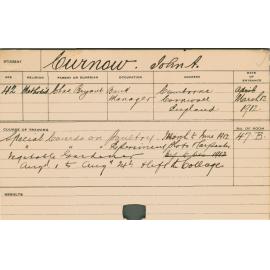 STUDENT Curnow. John A.
AGE RELIGION PARENT OR GUARDIAN OCCUPATION ADDRESS DATE OF ENTRANCE
42 Methodist Chas Bryant Bank Manager Camborne Cornwall England March 12 1912
COURSE OF TRAINING NO. OF ROOM
Special Course on Poultry March to June 1912 47 B.
" " Experiment Plots
Vegetable Gardening
Aug 1 to Aug 24 & left College
RESULTS